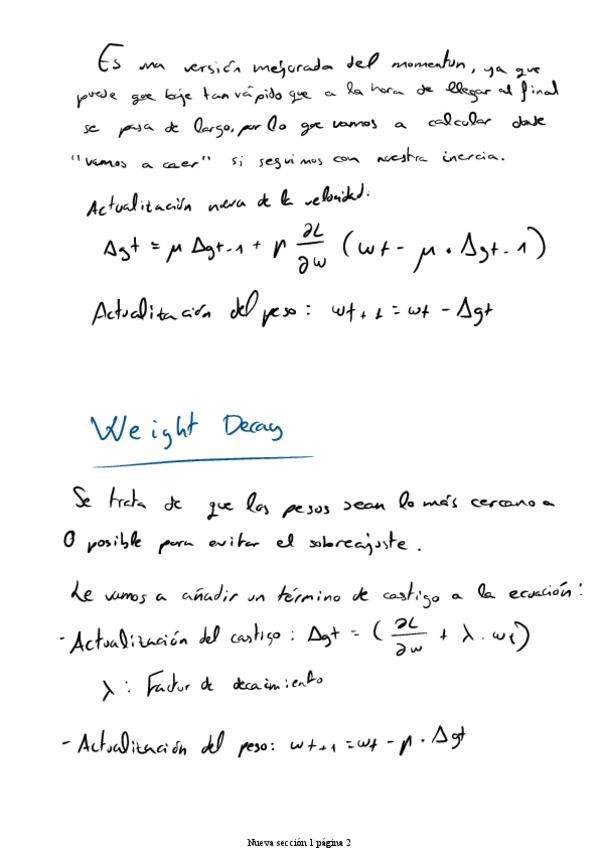 Es una versión mejorada del momentun, ya que
puede que baje tan rápido que a la hora de llegar al final
se pasa de largo, por lo que vamos a calcular donde
"vamos a caer" si seguimos con nuestra inercia.
Actualización nueva de la velocidad:
Δgt = μ Δgt-1 + r ∂L/∂w (wt - μ · Δgt-1)
Actualización del peso: wt+1 = wt - Δgt
Weight Decay
Se trata de que los pesos sean lo más cercano a
0 posible para evitar el sobreajuste.
Le vamos a añadir un término de castigo a la ecuación:
- Actualización del castigo: Δgt = (∂L/∂w + λ · wt)
λ: Factor de decaimiento
- Actualización del peso: wt+1 = wt - r · Δgt
Nueva sección 1 página 2